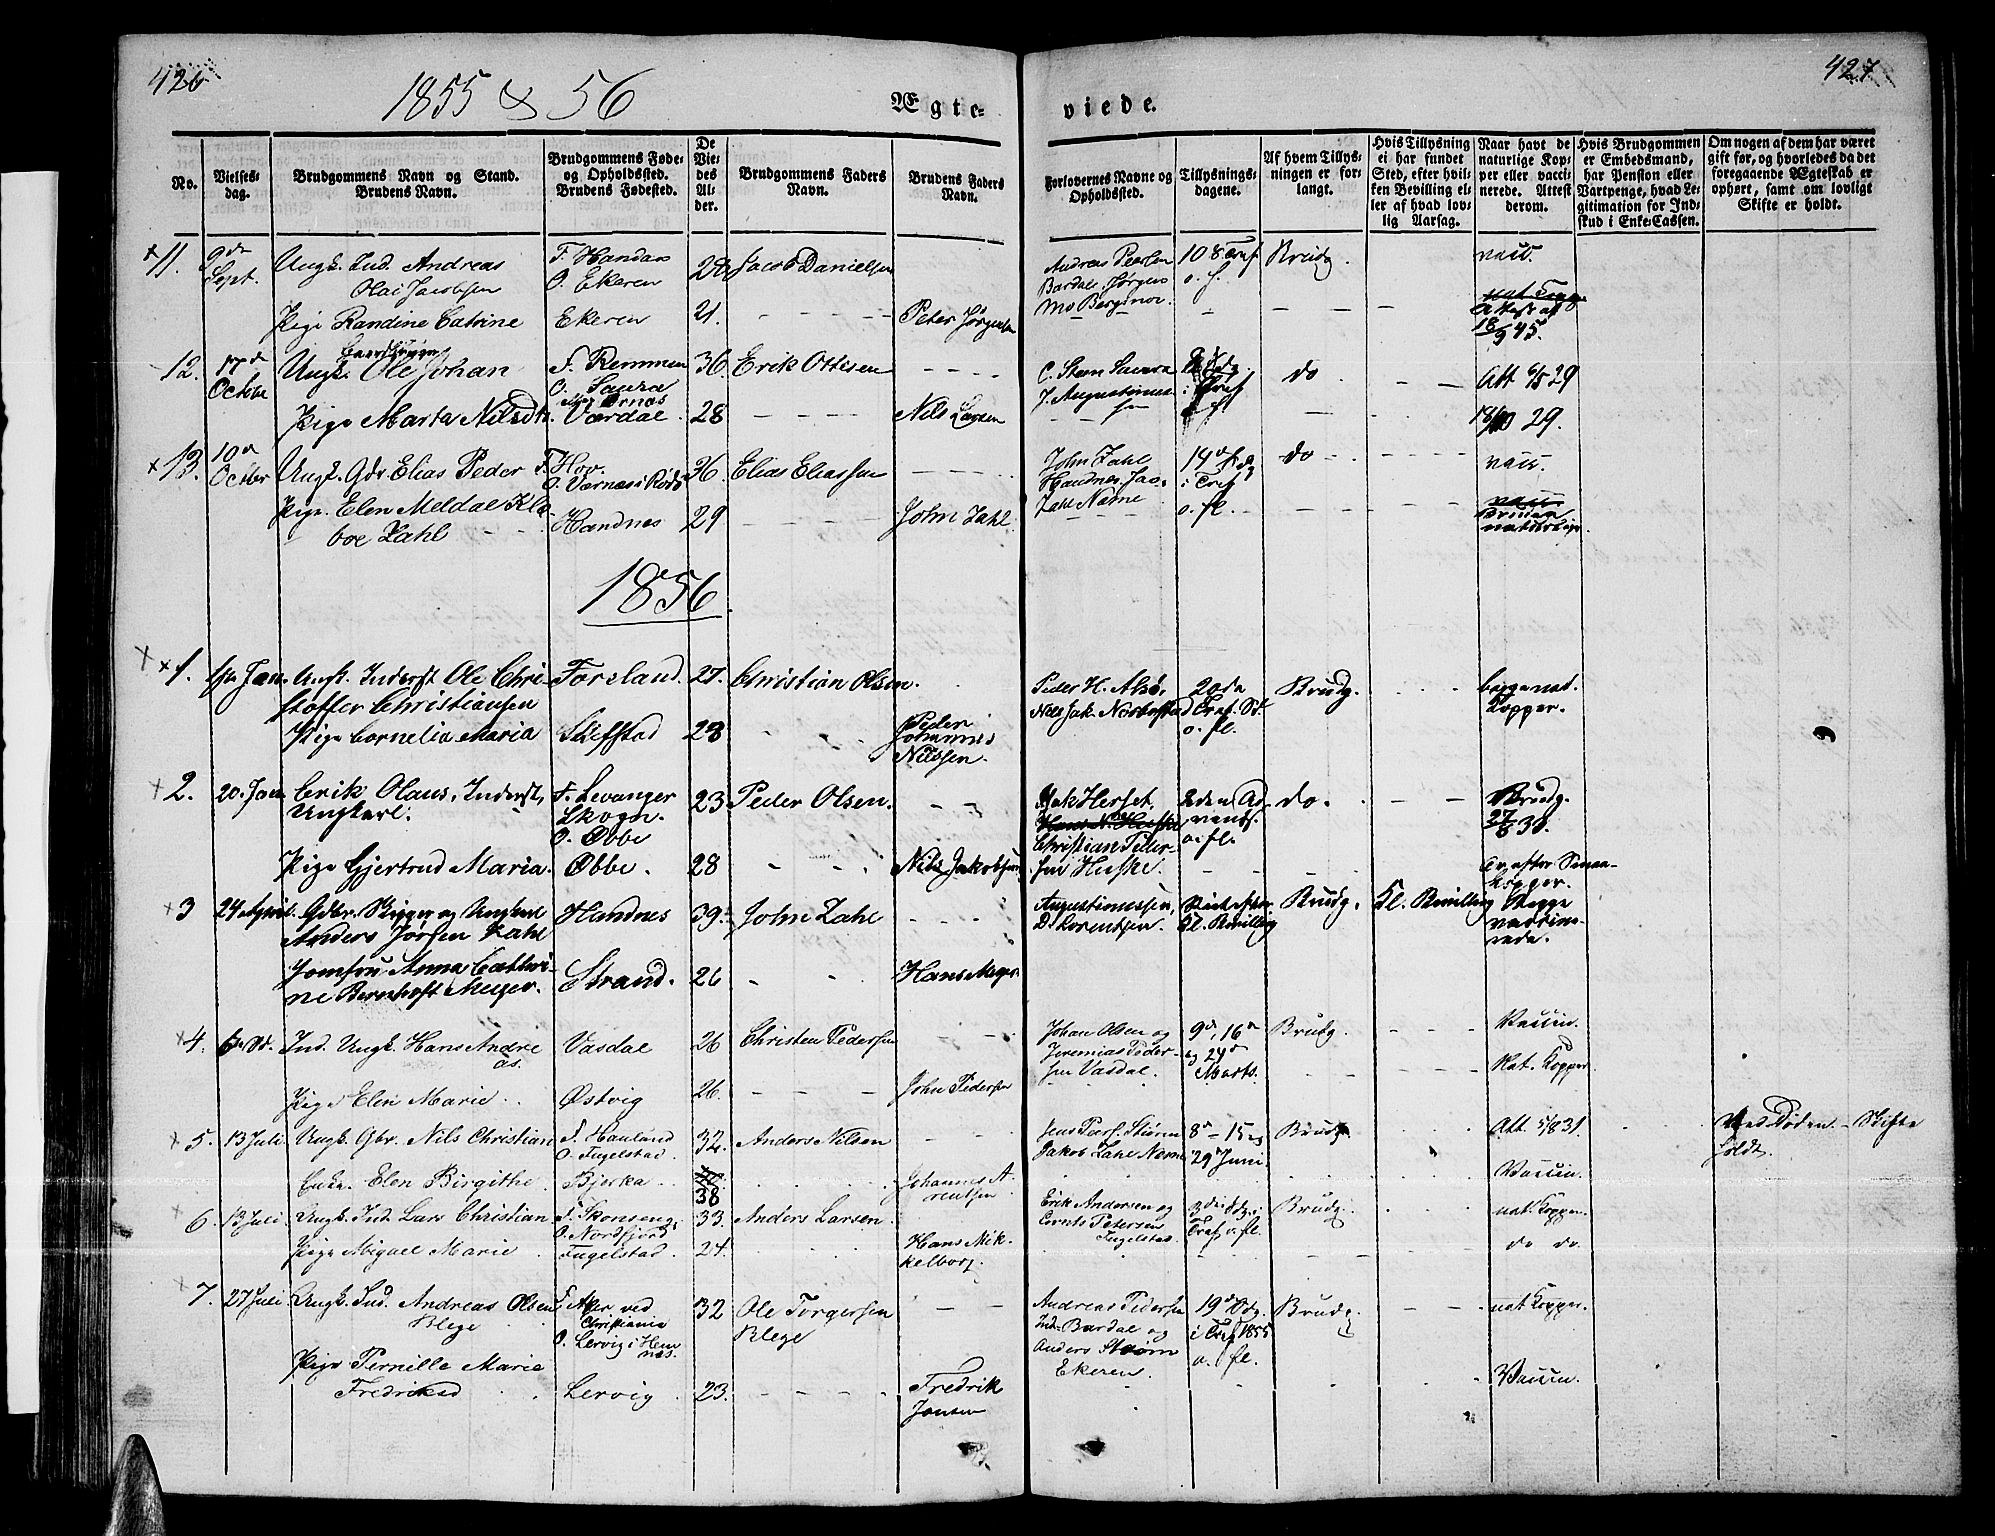 426
1855 & 56
Ægte-
viede.
427
No.
Vielses-
dag.
Brudgommens Navn og Stand.
Brudens Navn.
Brudgommens Føde-
og Opholdssted.
Brudens Fødested.
De
Vie-
des
Al-
der.
Brudgommens Faders
Navn.
Brudens Faders
Navn.
Forlovernes Navne og
Opholdssted.
Tillysnings-
dagene.
Af hvem Tillys-
ningen er for-
langt.
Hvis Tillysning
ei har fundet
Sted, efter hvil-
ken Bevilling el-
ler af hvad lov-
lig Aarsag.
Naar havt de
naturlige Kop-
per eller vacci-
nerede. Attest
derom.
Hvis Brudgommen
er Embedsmand,
har Pension eller
Vartpenge, hvad Le-
gitimation for Ind-
skud i Enke-Cassen.
Om nogen af dem har været
gift før, og hvorledes da det
foregaaende Ægteskab er
ophørt, samt om lovligt
Skifte er holdt.
11. 9de Sept. Ungk. Ind. Andreas
Olai Jacobsen
F. Handan
O. Ekeren
28 Jacob Danielsen
Andreas Peersen
Bardal Jørgen
Brudg.
vacc.
Pige Randine Catrine Ekeren 21. Peter Jørgensen
Attest af
18/9 45.
12. 17de October Ungk. Ole Johan
F. Remmen
36 Erik Ottesen
J. Augustinus-
sen
do
Att 6/5 29
Pige Marta Nilsdtr. Værdal 28 Nils Larsen
18/10 29.
13. 10de Octber Ungk. Gdr Elias Peder F. Hov.
O. Værnes i Rødø 36 Elias Eliassen
John Zahl
Handnes Jac.
Zahl Næme
14de Sdg
i Tref
o. fl.
do
vacc.
Pige Elen Meldal Kle-
boe Zahl Handnes 29 John Zahl.
1856.
1. 1ste Jan. Ungk. Inderst Ole Chri-
stoffer Christiansen
Forsland. 27. Christian Olsen
Peder H. Alsø,
20de
Tref. Sd.
o. fl.
Brudg.
begge nat.
Kopper.
Pige Cornelia Maria 23 Peder
Johannes
Nilssen.
2. 20. Jan. Erik Olaus, Inderst,
Ungkarl.
F. Levanger
Skogn.
O. Øbbe
23 Peder Olsen.
Jak Herset,
Christian Peder-
sen Huske.
2den Ad-
vents.
o. fl.
do.
Brudg.
27/8 30.
Pige Gjertrud Maria. Øbbe. 28 Nils Jakobsen
Kopper.
3 24 April. Gdbr. Skipper og Ungkarl
Anders Jørgen Zahl
Handnes 39. John Zahl
Augustinussen,
D. Lorentsen.
Kl. Bevilling
Brudg. Kl. Bevilling
Begge
vaccine-
rede.
Jomfru Anna Cathri-
ne Bernhoft Meyer. Strand. 26 Hans Meyer
4. Ind. Ungk. Hans Andre
as. Vasdal 26 Christen Pedersen
Johan Olsen og
Jeremias Peder-
sen Vasdal.
9de, 16de
og 24de
Marts.
Brudg.
Vaccin.
Pige Elen Marie Østvig 26. John Pedersen
Nat. Kopper
5. 13 Juli. Ungk. Gbr. Nils Christian F. Hauland
O. Fugelstad. 32. Anders Nilsen
Jakob Zahl Næme
8de - 15 og
29de Juni.
Brudg.
Att. 5/8 31.
Ved Døden - Skifte
holdt.
Enke. Elen Birgithe. Bjerka 38 Johannes A-
rentsen
Vaccin.
6. 13 Juli. Ungk. Ind. Lars Christian F. Skonseng
O. Nordfjord 33. Anders Larsen.
Erik Andersen og
Cornts Petersen
Fugelstad.
3die Sdg. i
Tref. o. fl.
Brudg.
nat Kopper.
Pige Abigael Marie Fugelstad 24. Hans Mik-
kelborg.
do do.
7. 27 Juli. Ungk. Ind. Andreas Olsen
Blege
F. Aker ved
Christiania
O. Lervig i Hem-
nes.
32 Ole Torgersen
Blege
Andreas Pedersen
Ind. Bardal og
Anders Strøm
Ekeren.
19de Sdg.
i Tref 1855
o. fl.
Brudg.
nat Kopper.
Pige Pernille Marie
Fredriksd Lervig 23. Fredrik
Jonsen
Vaccin.